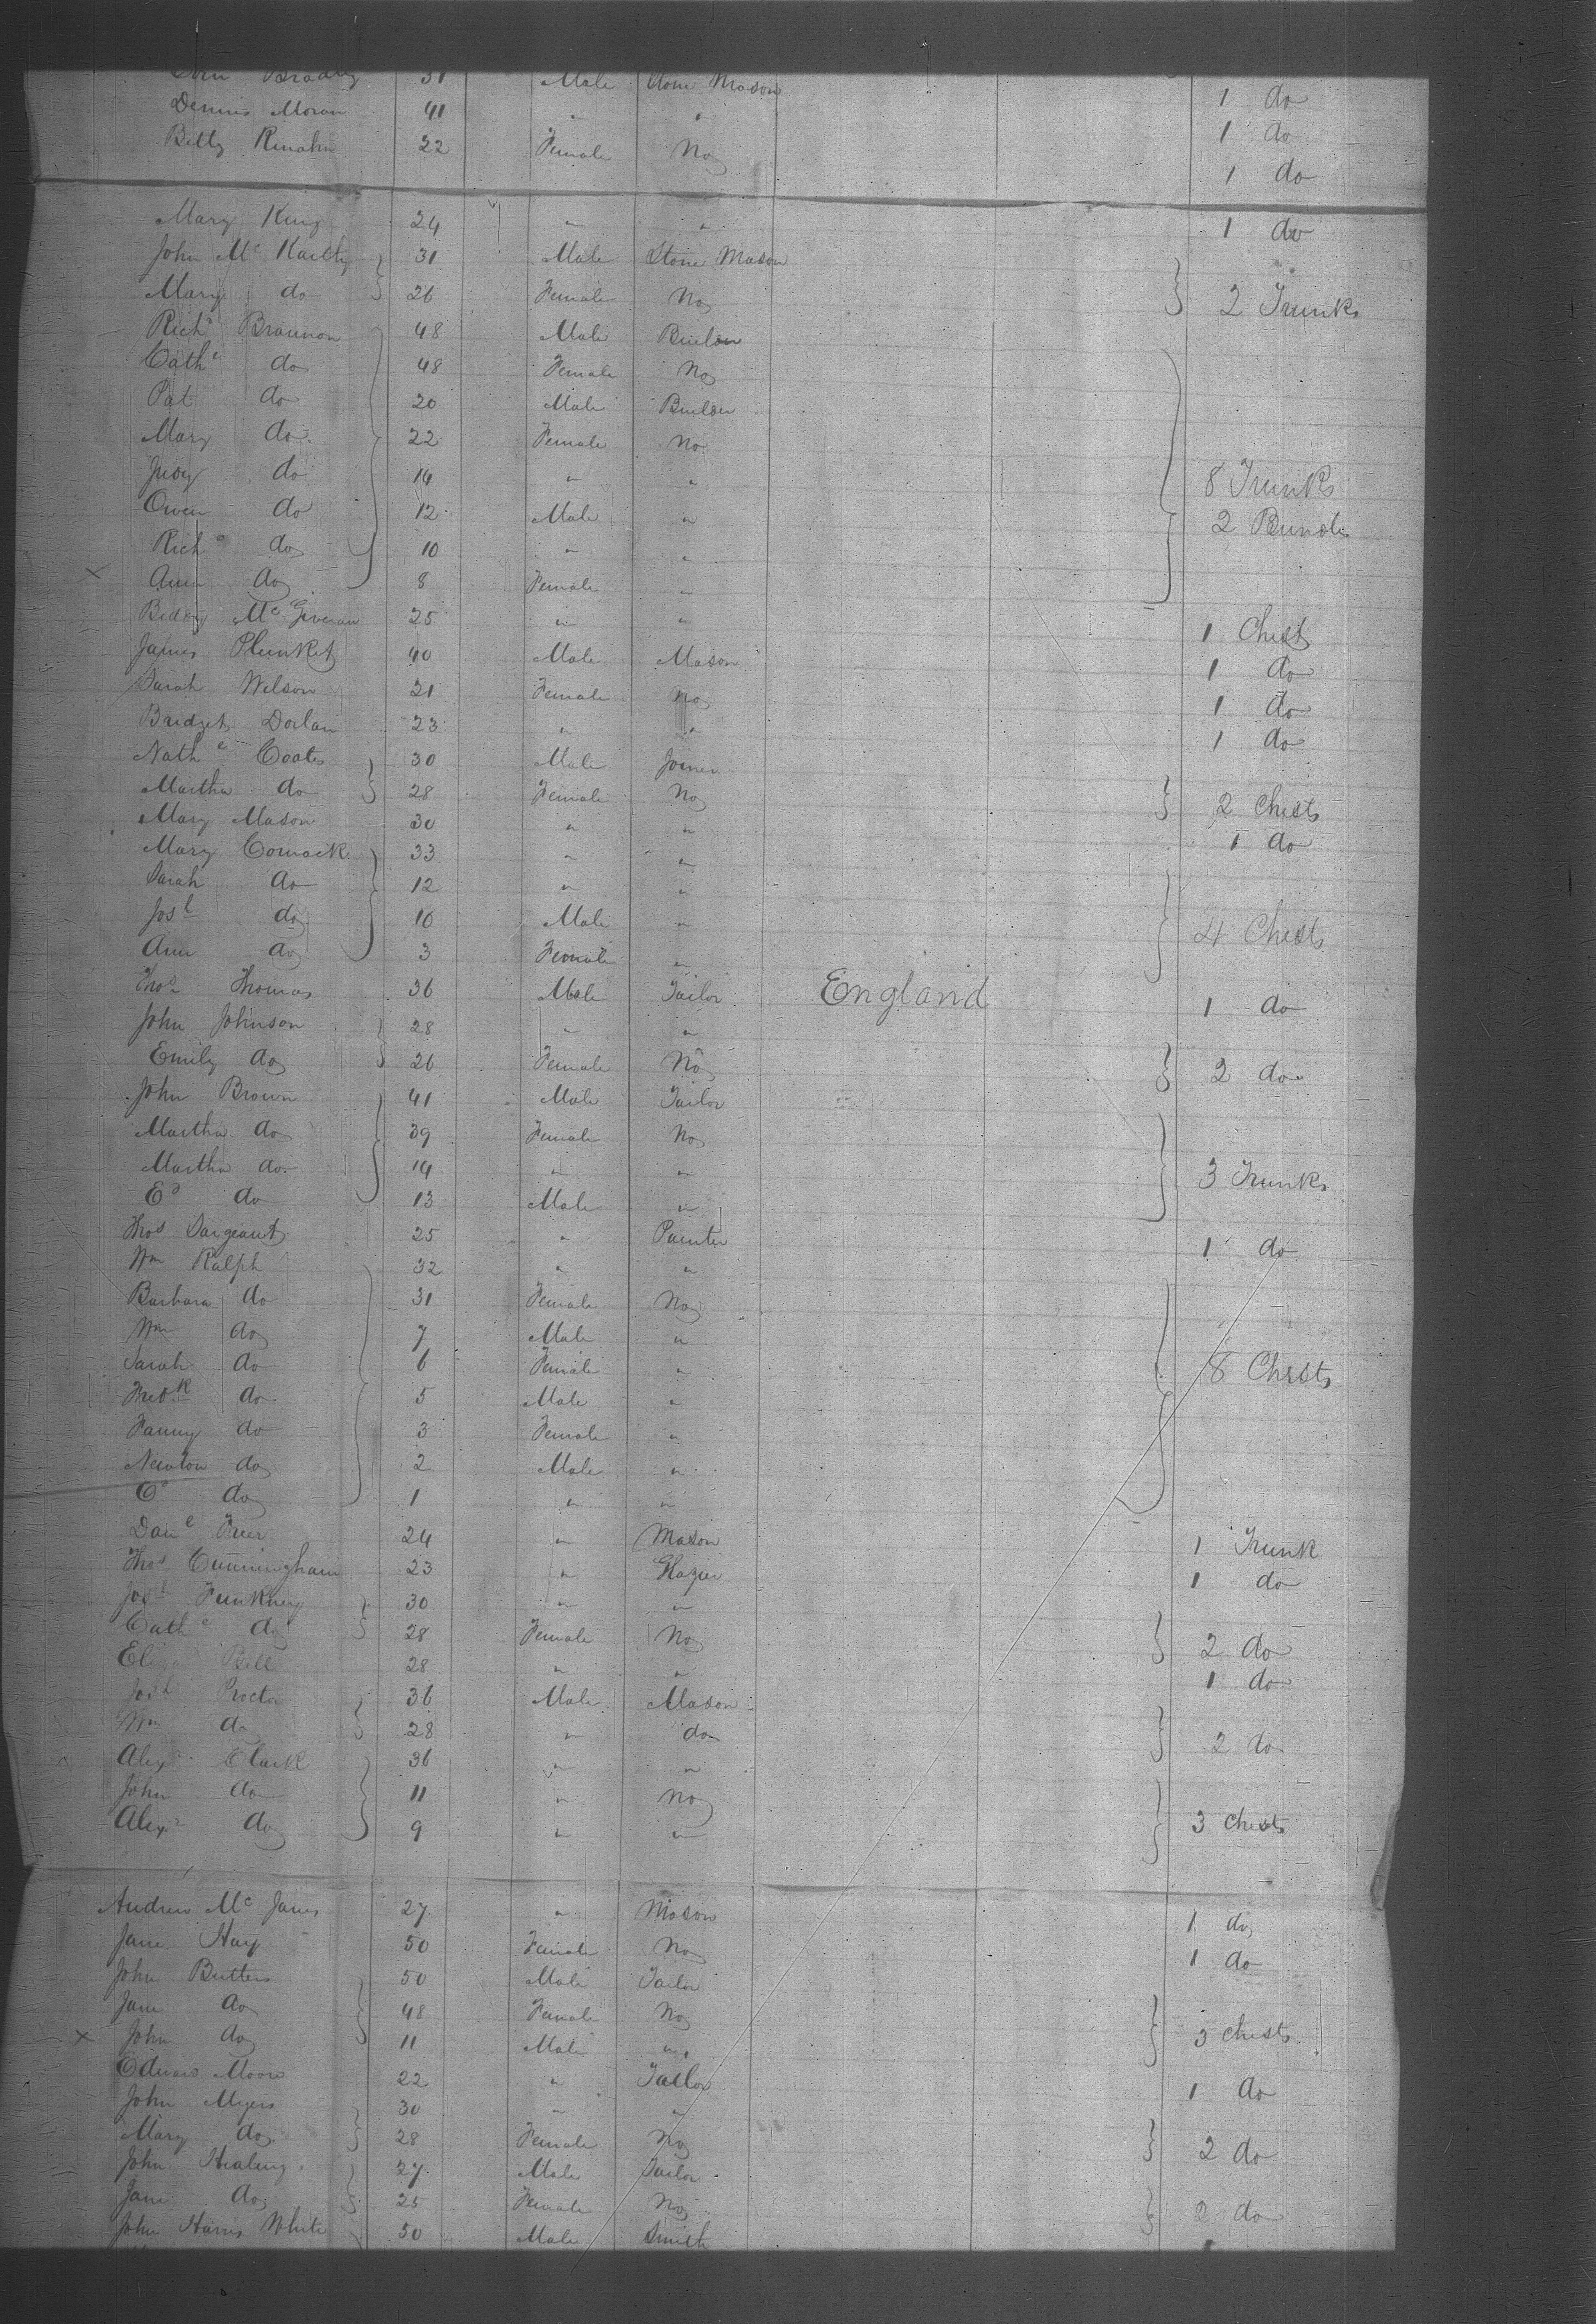 Brady 31 Male Stone Mason 1 do
Dennis Moran 41 " " 1 do
Betty Rinahn 22 Female No 1 do
Mary King 24 " " 1 do
John Mc Kaelty 31 Male Stone Mason
Mary do 26 Female No 2 Trunks
Richd Brannon 48 Male Builder
Cathe do 48 Female No
Pat do 20 Male Builder
Mary do 22 Female No
Judy do 14 " " 8 Trunks
Owen do 12 Male " 2 Bundls
Richd do 10 " "
Ann do 8 Female "
Biddy Mc Giveran 25 " " 1 Chest
James Plunket 40 Male Mason 1 do
Sarah Wilson 21 Female No 1 do
Bridget Dorlan 23 " " 1 do
Nathl Coates 30 Male Joiner
Martha do 28 Female No 2 Chests
Mary Mason 30 " " 1 do
Mary Cormack 33 " "
Sarah do 12 " "
Josh do 10 Male " 4 Chests
Ann do 3 Female "
Thos Thomas 36 Male Tailor England 1 do
John Johnson 28 " "
Emily do 26 Female No 2 do
John Brown 41 Male Tailor
Martha do 39 Female No
Martha do 14 " " 3 Trunks
Ed do 13 Male "
Thos Sargeant 25 " Painter 1 do
Wm Ralph 32 " "
Barbara do 31 Female No
Wm do 7 Male "
Sarah do 6 Female " 8 Chests
Fredk do 5 Male "
Fanny do 3 Female "
Newton do 2 Male "
do 1 " "
Danl Frier 24 " Mason 1 Trunk
Thos Cunningham 23 " Glazier 1 do
Josh Funkney 30 " "
Cathe do 28 Female No 2 do
Eliza Bell 28 " " 1 do
Josh Procter 36 Male Mason
Wm do 28 " do 2 do
Alexr Clark 36 " "
John do 11 " No
Alexr do 9 " " 3 Chests
Andrew Mc James 27 " Mason 1 do
Jane Hay 50 Female No 1 do
John Butters 50 Male Tailor
Jane do 48 Female No
John do 11 Male " 3 Chests
Edward Moore 22 " Tailor 1 do
John Myers 30 " "
Mary do 28 Female No 2 do
John Healing 27 Male Tailor
Jane do 25 Female No 2 do
John Harris White 50 Male Smith